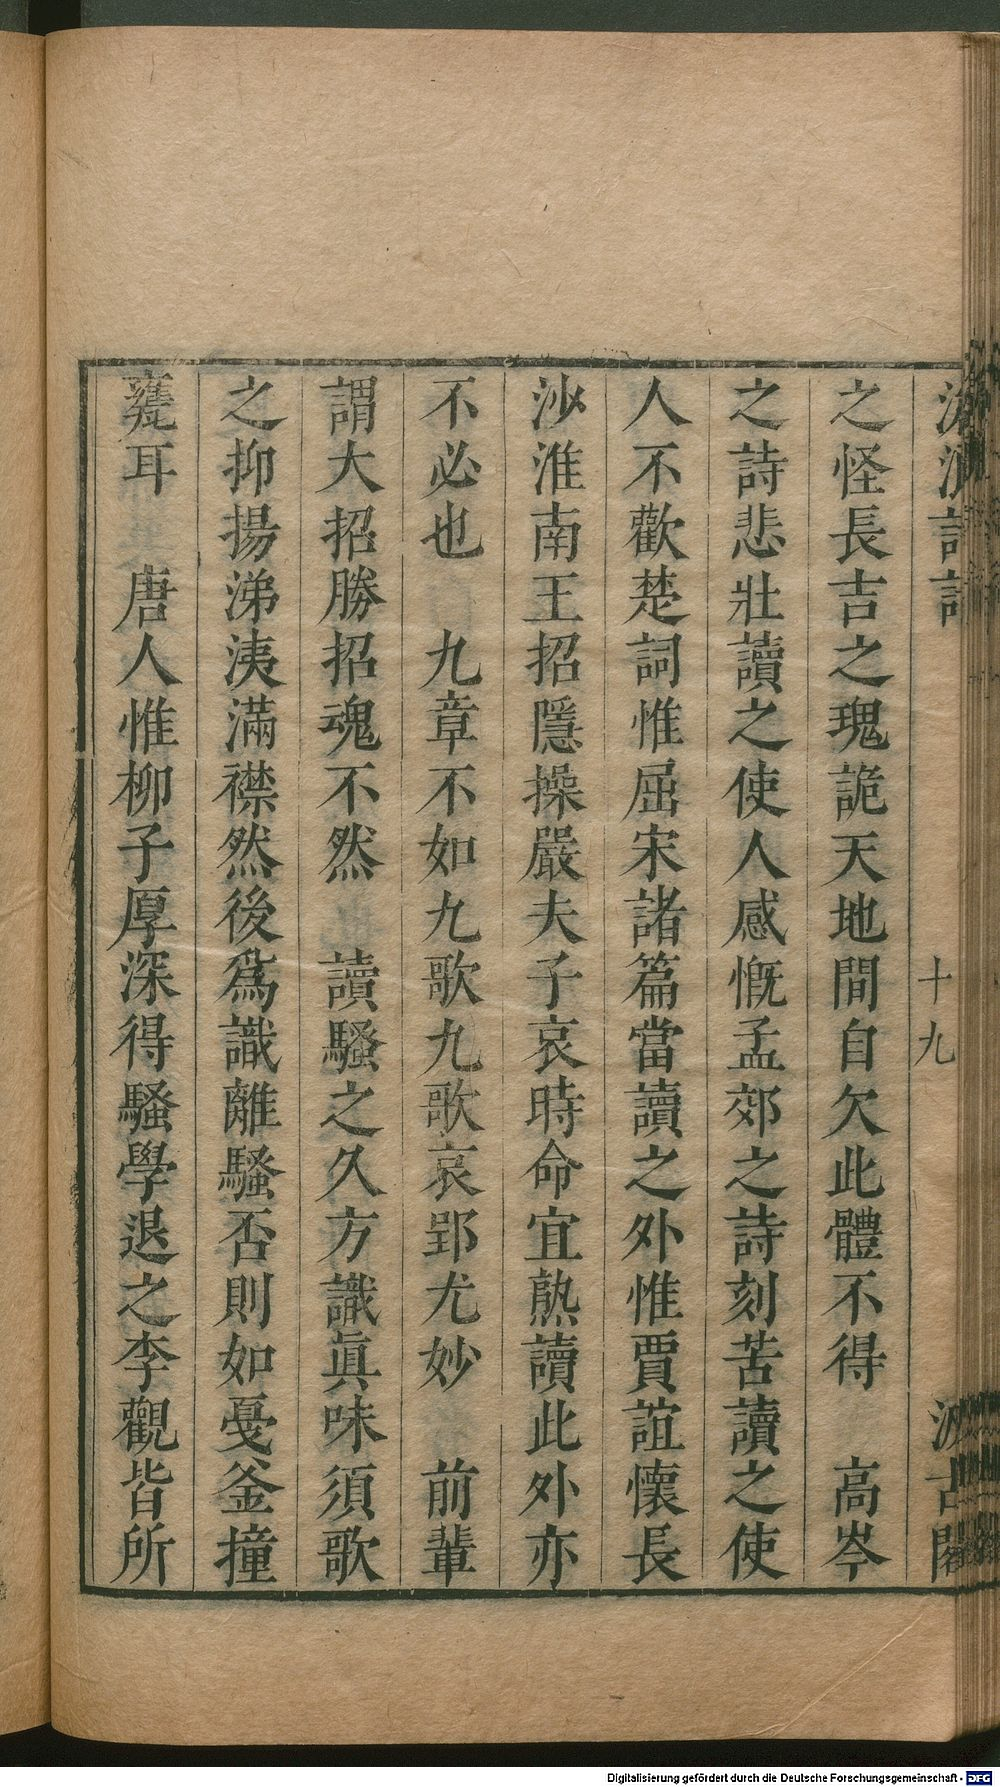 滄浪詩話 十九 汲古閣
之怪長吉之瑰詭天地間自欠此體不得 高岑
之詩悲壯讀之使人感慨孟郊之詩刻苦讀之使
人不歡楚詞惟屈宋諸篇當讀之外惟賈誼懷長
沙淮南王招隱操嚴夫子哀時命宜熟讀此外亦
不必也 九章不如九歌九歌哀郢尤妙 前輩
謂大招勝招魂不然 讀騷之久方識眞味須歌
之抑揚涕洟滿襟然後爲識離騷否則如戞釜撞
甕耳 唐人惟柳子厚深得騷學退之李觀皆所
Digitalisierung gefördert durch die Deutsche Forschungsgemeinschaft - DFG